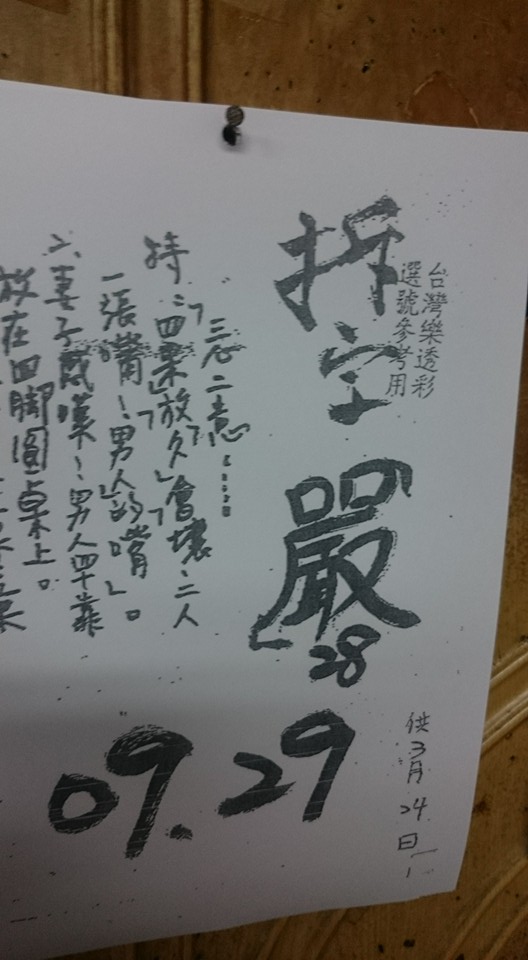 台灣樂透彩
選號參考用
拆字
嚴
28
供3月24日
三心二意……
持:「四果」放「久」會壞:二人
一張嘴~「男人的嘴」。
六、妻子感嘆~男人四十靠
放在四脚圓桌上。
09.29